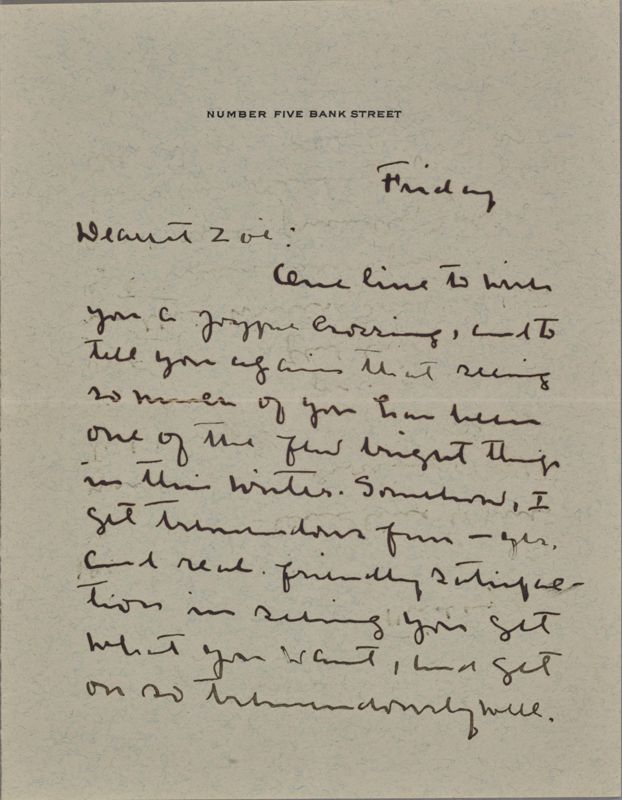 NUMBER FIVE BANK STREET
Friday
Dearest Zoë:
One line to wish
you a joyful crossing, and to
tell you again that seeing
so much of you has been
one of the few bright things
in this winter. Somehow, I
get tremendous fun — yes,
and real friendly satisfac-
tion in seeing you get
what you want, and get
on so tremendously well.